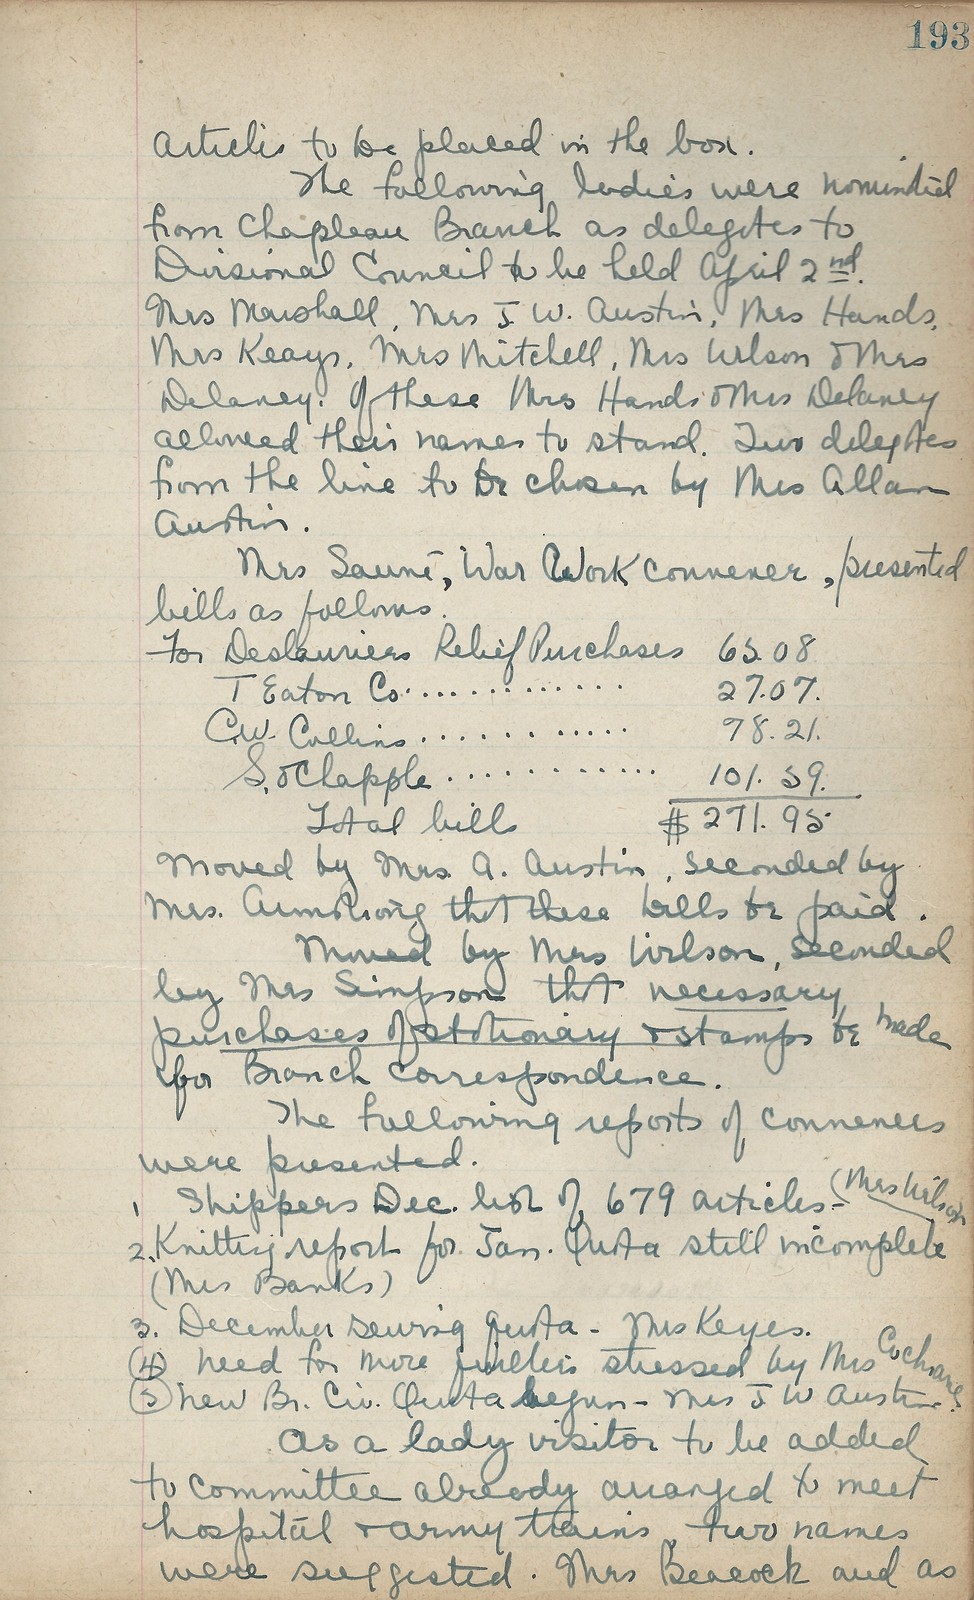 193
articles to be placed in the box.
The following ladies were nominated
from Chapleau Branch as delegates to
Divisional Council to be held April 2nd.
Mrs Marshall, Mrs J. W. Austin, Mrs Hands,
Mrs Keays, Mrs Mitchell, Mrs Wilson & Mrs
Delaney. Of these Mrs Hands & Mrs Delaney
allowed their names to stand. Two delegates
from the line to be chosen by Mrs Allan
Austin.
Mrs Sauvé, War Work convener, presented
bills as follows.
For Deslauriers Relief Purchases 65.08
T Eaton Co............. 27.07.
C.W. Collins........... 78.21.
S. & Chapple............ 101.59.
Total bills $271.95
Moved by Mrs. A. Austin, seconded by
Mrs. Armstrong that these bills be paid.
Moved by Mrs Wilson, seconded
by Mrs Simpson that necessary
purchases of stationary & stamps be made
for Branch correspondence.
The following reports of conveners
were presented.
1 Shippers Dec. list of 679 articles - (Mrs Wilson
2. Knitting report for Jan. Quota still incomplete
(Mrs Banks)
3. December sewing quota - Mrs Keyes.
(4) need for more quilters stressed by Mrs Cochrane
(5) new Br. Civ. Quota begun - Mrs J W Austin.
As a lady visitor to be added
to committee already arranged to meet
hospital & army trains, two names
were suggested. Mrs Beacock and as